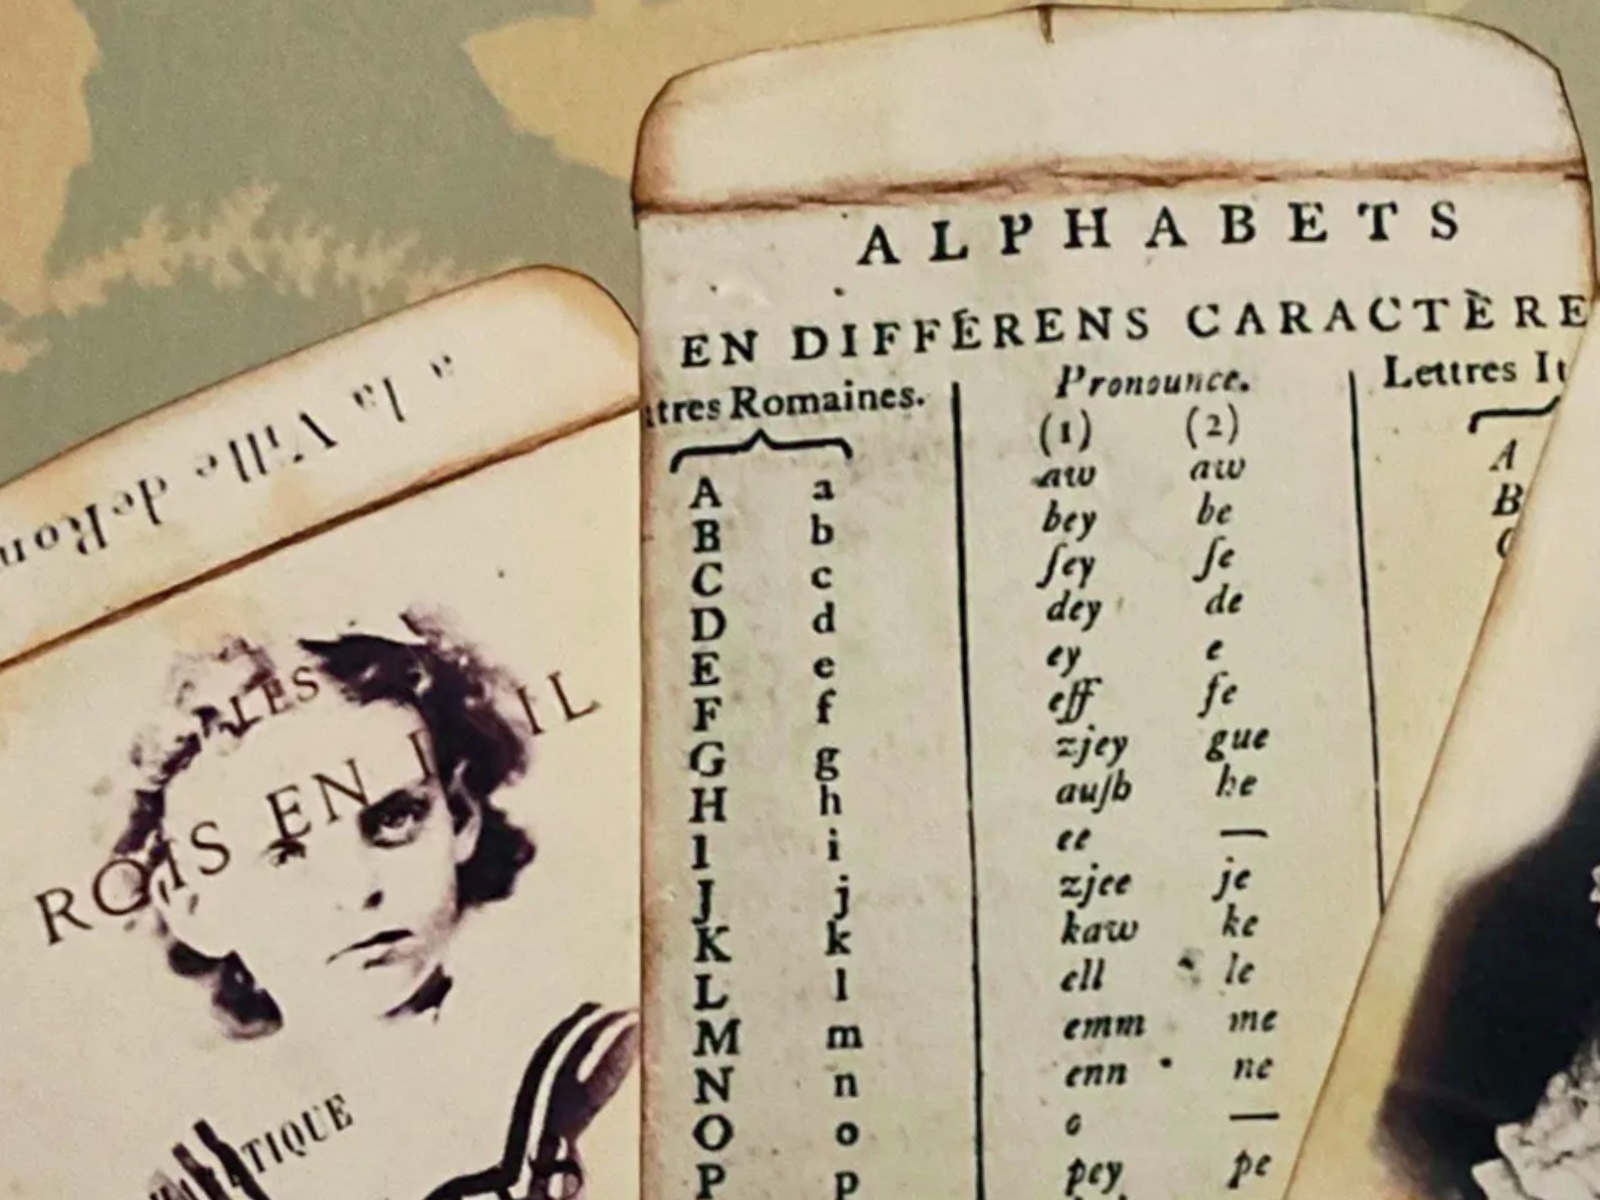 a la Ville de Rom
LES
ROIS EN IL
TIQUE
ALPHABETS
EN DIFFÉRENS CARACTÈRE
ttres Romaines. Pronounce. Lettres It
(1) (2)
A a aw aw A
B b bey be B
C c ſey ſe C
D d dey de
E e ey e
F f eff fe
G g zjey gue
H h auſh he
I i ee —
J j zjee je
K k kaw ke
L l ell le
M m emm me
N n enn ne
O o o —
P p pey pe